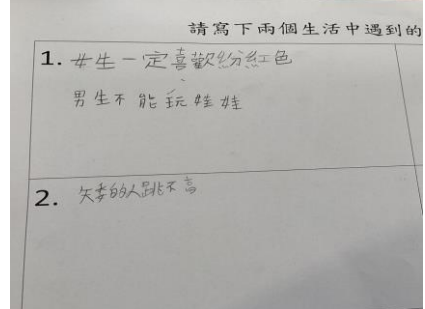 請寫下兩個生活中遇到的
1. 女生一定喜歡紛紅色
男生不能玩娃娃
2. 矢委的人跳不高